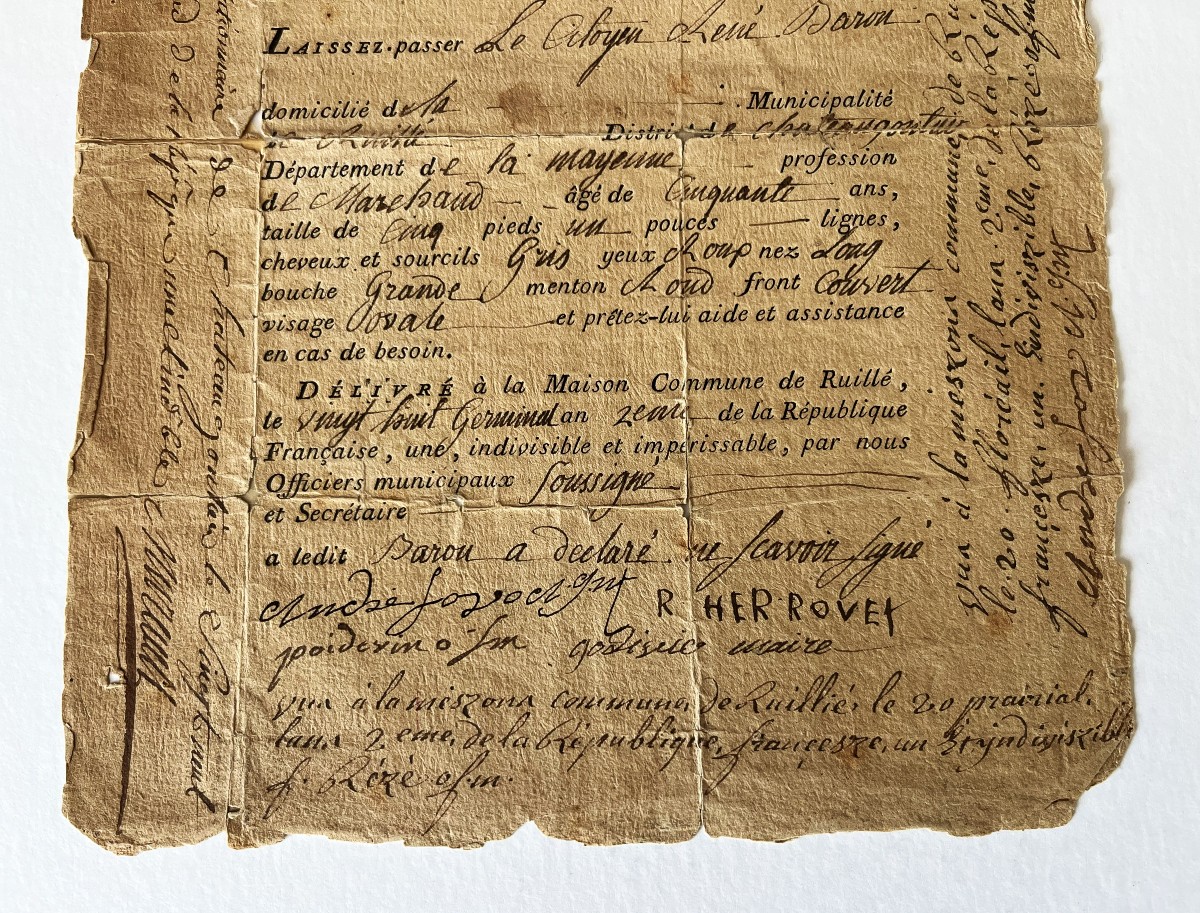 LAISSEZ-passer Le Citoyen René Baron
domicilié de la Municipalité
de Ruillé District de chateaugontier
Département de la mayenne profession
de Marchand âgé de Cinquante ans,
taille de Cinq pieds un pouces lignes,
cheveux et sourcils Gris yeux Roux nez Long
bouche Grande menton Rond front Couvert
visage Ovale et prêtez-lui aide et assistance
en cas de besoin.
DÉLIVRÉ à la Maison Commune de Ruillé,
le vingt huit Germinal an 2eme de la République
Française, une, indivisible et impérissable, par nous
Officiers municipaux Soussigné
et Secrétaire
a ledit Baron a declaré ne scavoir signé
R HERROVET
poidevin o f m maire
vua á la meszona communa de Ruillié, le 20 prairial,
lana 2 eme, de la République, françesze, un
f. Rézé of.m.
vua á la meszona communa, de
le 20 floréail, lana 2eme, de la Rép
françesze, un. Indiviszible, Rézé of.m
de Chateaugontier la